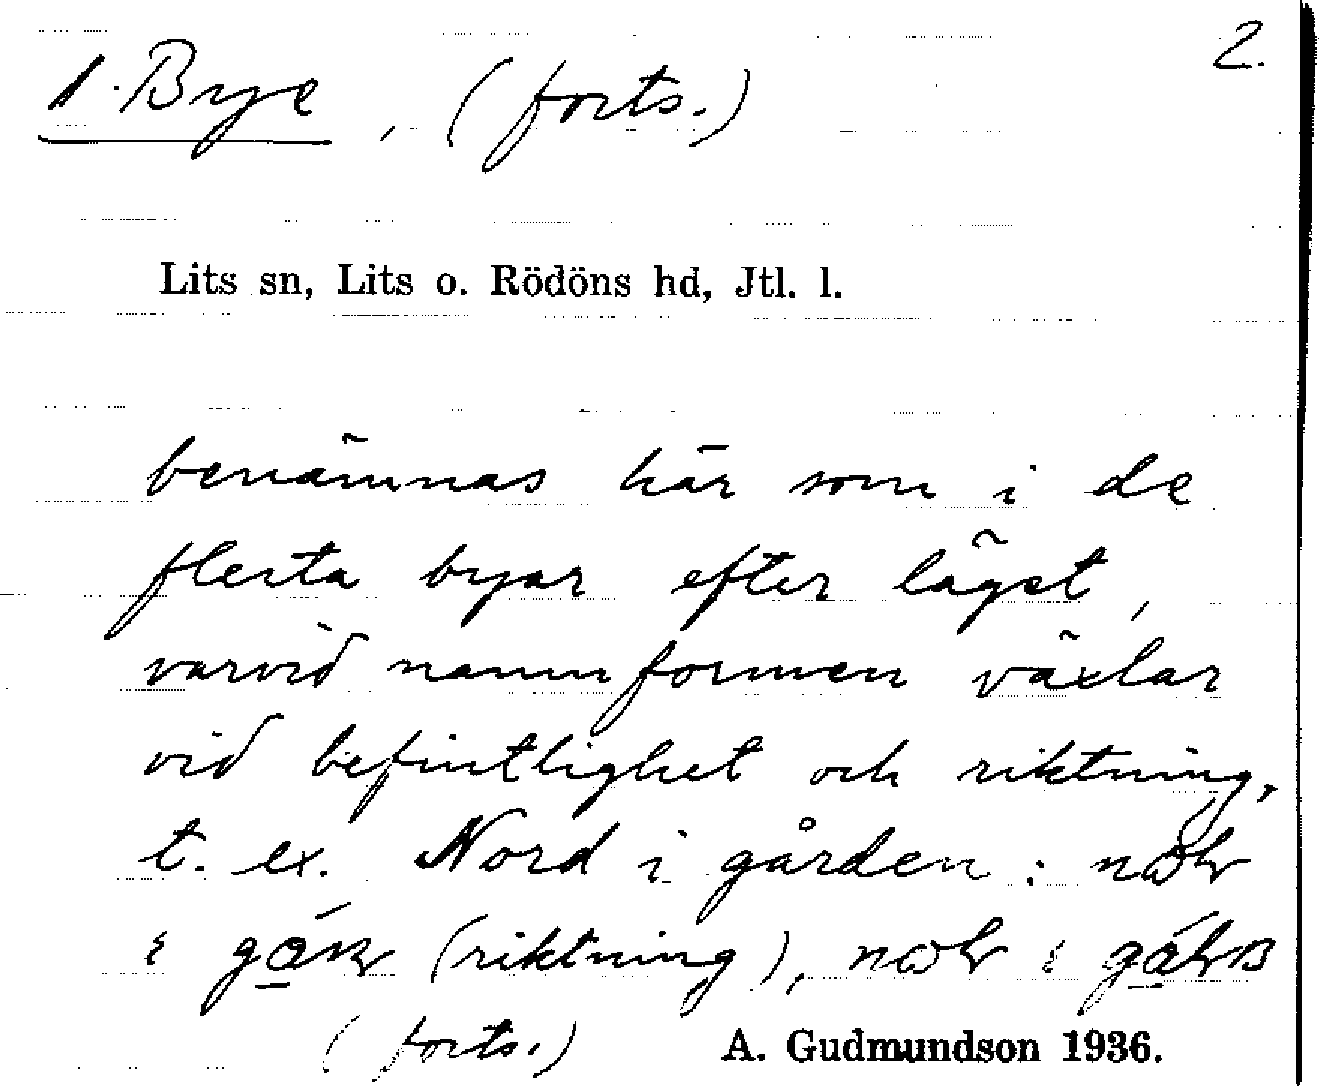 2.
1. Brye, (forts.)
Lits sn, Lits o. Rödöns hd, Jtl. l.
benämnas här som i de
flesta byar efter läget,
varvid namnformen växlar
vid befintlighet och riktning,
t. ex. Nord i gården :
(riktning),
(forts.)
A. Gudmundson 1936.